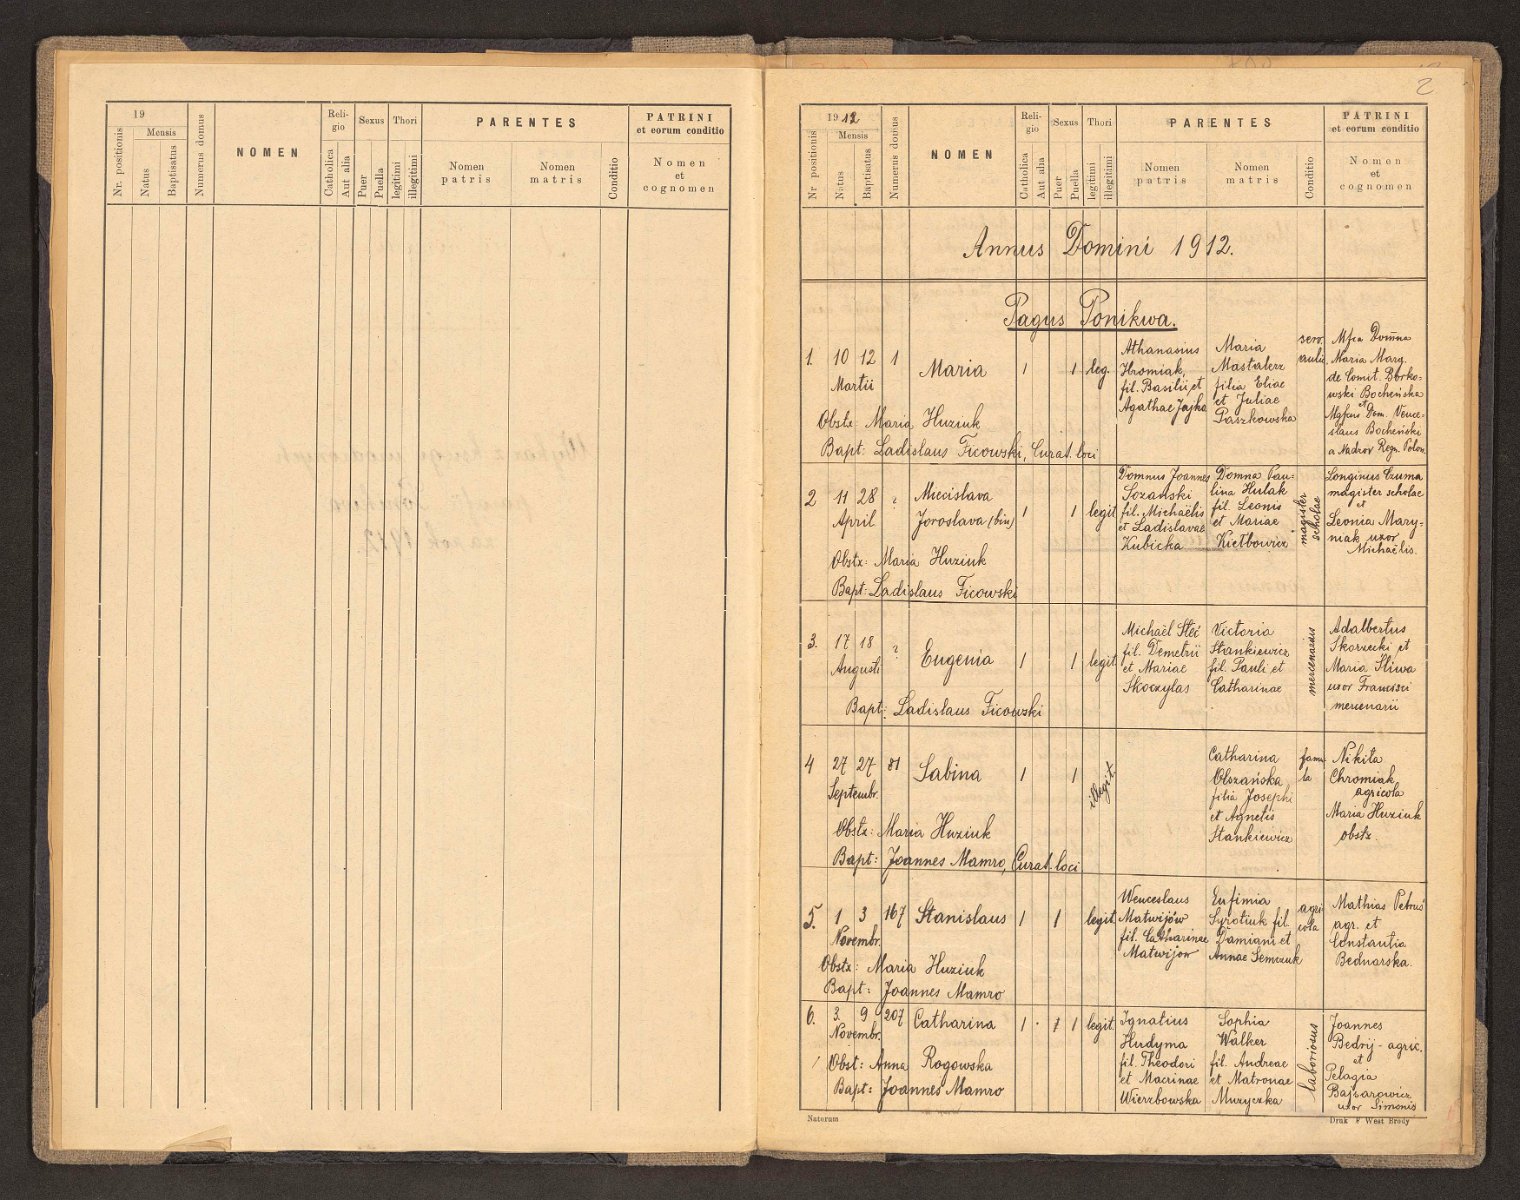 19
Nr. positionis
Mensis
Natus
Baptisatus
Numerus domus
NOMEN
Religio
Catholica
Aut alia
Sexus
Puer
Puella
Thori
legitimi
illegitimi
PARENTES
Nomen patris
Nomen matris
Conditio
PATRINI
et eorum conditio
Nomen
et
cognomen
2
1912
Nr positionis
Mensis
Natus
Baptisatus
Numerus domus
NOMEN
Religio
Catholica
Aut alia
Sexus
Puer
Puella
Thori
legitimi
illegitimi
PARENTES
Nomen patris
Nomen matris
Conditio
PATRINI
et eorum conditio
Nomen
et
cognomen
Annus Domini 1912.
Pagus Ponikwa.
1. 10 12 1
Martii
Maria
1 1 leg.
Athanasius
Hromiak,
fil. Basilii et
Agathae Jajko
Maria
Mastalerz
filia Eliae
et Juliae
Paszkowska
serv.
aulic.
Mfca Domna
Maria Marg.
de Comit. Borko-
wski Bocheńska
et
Mgfcus Dom. Vence-
slaus Bocheński
Obstx: Maria Huziuk
Bapt: Ladislaus Ficowski, Curat. loci
2 11 28 ?
April
Miecislava
Joroslava (bin)
1 1 legit
Domnus Joannes
Sozański
fil. Michaëlis
et Ladislavae
Kubicka
Domna Pau-
lina Hulak
fil. Leonis
et Mariae
Kiełbowicz
magister
scholae
Longinus Czuma
magister scholae
et
Leonia Mary-
niak uxor
Michaëlis
Obstx: Maria Huziuk
Bapt: Ladislaus Ficowski
3. 17 18 ?
Augusti
Eugenia
1 1 legit
Michaël Steć
fil. Demetrii
et Mariae
Skoczylas
Victoria
Stankiewicz
fil. Pauli et
Catharinae
mercenarius
Adalbertus
Skorzecki et
Maria Sliwa
uxor Francisci
mercenarii
Bapt: Ladislaus Ficowski
4 27 27 81
Septembr.
Sabina
1 1 illegit.
Catharina
Olszańska
filia Josephi
et Agnetis
Stankiewicz
famu
la
Nikita
Chromiak
agricola
Maria Huziuk
obstx.
Obstx: Maria Huziuk
Bapt: Joannes Mamro, Curat. loci
5. 1 3 167
Novembr.
Stanislaus
1 1 legit
Wenceslaus
Matwijów
fil. Catharinae
Matwijow
Eufimia
Syrotiuk fil.
Damiani et
Annae Semczuk
agri
cola
Mathias Petrus
agr. et
Constantia
Bednarska.
Obstx: Maria Huziuk
Bapt: Joannes Mamro
6. 3. 9 207
Novembr.
Catharina
1 . 1 1 legit
Ignatius
Hudyma
fil. Theodori
et Macrinae
Wierzbowska
Sophia
Walker
fil. Andreae
et Matronae
Muzyczka
laboriosus
Joannes
Bedrij - agric.
et
Pelagia
Bajcarowicz
uxor Simonis
Obst: Anna Rogowska
Bapt: Joannes Mamro
Naterum
Druk F West Brody